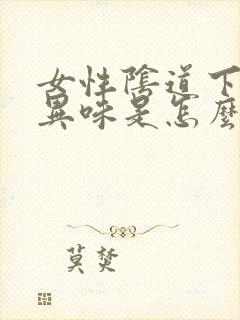 女性陰道下
異味是怎麼
莫焚